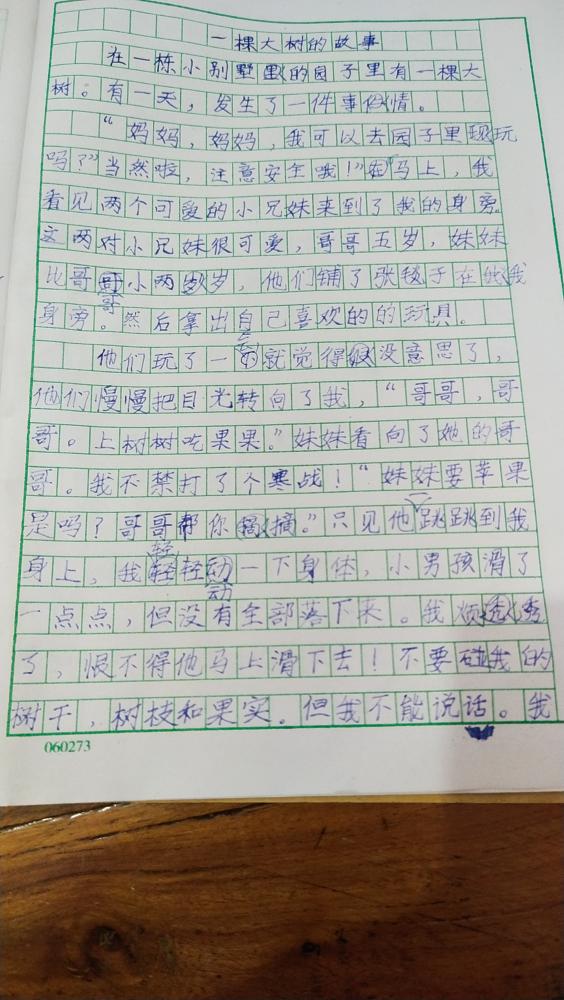 一棵大树的故事
在一栋小别墅里的园子里有一棵大
树。有一天，发生了一件事情。
“妈妈，妈妈，我可以去园子里玩
吗？”当然啦，注意安全哦！”马上，我
看见两个可爱的小兄妹来到了我的身旁。
这两对小兄妹很可爱，哥哥五岁，妹妹
比哥哥小两岁，他们铺了张毯子在我
身旁。然后拿出自己喜欢的的玩具。
他们玩了一会就觉得没意思了，
他们慢慢把目光转向了我，“哥哥，哥
哥。上树树吃果果。”妹妹看向了她的哥
哥。我不禁打了个寒战！“妹妹要苹果
是吗？哥哥帮你摘。”只见他跳跳到我
身上，我轻轻动一下身体，小男孩滑了
一点点，但没有全部落下来。我烦透
了，恨不得他马上滑下去！不要碰我的
树干，树枝和果实。但我不能说话。我
060273